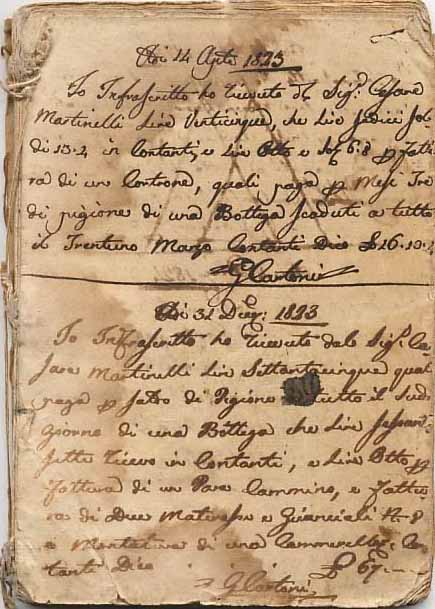 Adi 14 Agto 1823
Io Infrascritto ho Ricevuto dl Sigr. Cesare
Martinelli Lire Venticinque, che Lire sedici sol
di 13.4 in Contanti, e Lire Otto e 6.8 p Fattu
ra di un Controne, quali paga p Mesi Tre
di pigione di una Bottega Scaduti a tutto
il Trentuno Marzo Contanti Dico £ 16.10.4
G Cartoni
Adi 31 Dicr: 1823
Io Infrascritto ho Ricevuto dal Sigr. Ce
sare Martinelli Lire Settantacinque quali
paga p saldo di Pigione tutto il Sud.
giorno di una Bottega che Lire Sessant
sette Ricevo in Contanti, e Lire Otto p
Fattura di un Para Cammino, e Fattu
ra di Due Materasse e Guanciali
e Montatura di una Cammerella: Con
tanti Dico £ 67.
G Cartoni